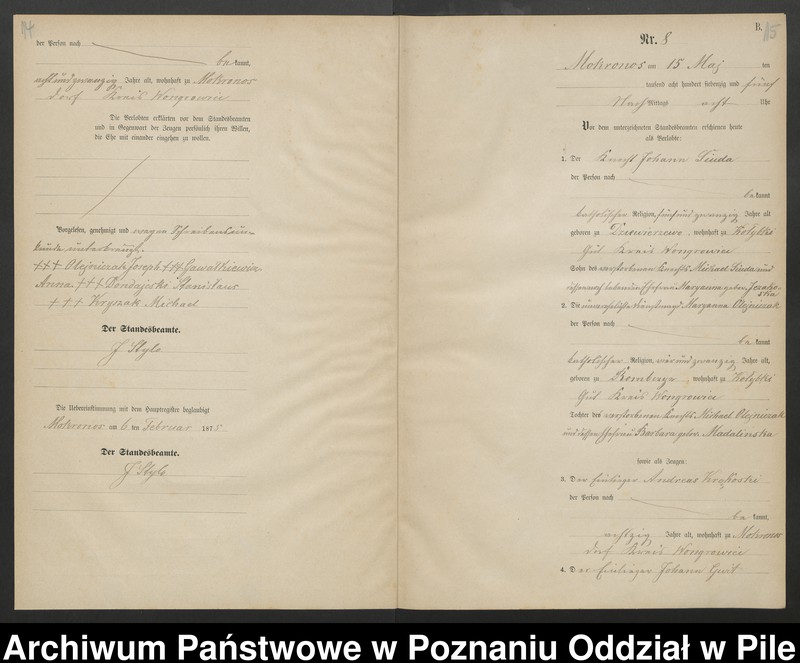 14
der Person nach
be kannt,
achtundzwanzig Jahre alt, wohnhaft zu Mokronos
dorf Kreis Wongrowiec
Die Verlobten erklärten vor dem Standesbeamten
und in Gegenwart der Zeugen persönlich ihren Willen,
die Ehe mit einander eingehen zu wollen.
Vorgelesen, genehmigt und wegen Schreibensun-
kunde unterkreuzt.
+++ Olejniczak Joseph +++
Anna +++ Stanislaus
+++ Krysak Michael
Der Standesbeamte.
J Stylo
Die Uebereinstimmung mit dem Hauptregister beglaubigt
Mokronos am 6 ten Februar 1875.
Der Standesbeamte.
J Stylo
B.
15
Nr. 8
Mokronos am 15 Maj ten
tausend acht hundert siebenzig und fünf
Nach Mittags acht Uhr
Vor dem unterzeichneten Standesbeamten erschienen heute
als Verlobte:
1. Der Knecht Johann
der Person nach
be kannt
katholischer Religion, fünfundzwanzig Jahre alt
geboren zu Dziewierzewo, wohnhaft zu Kolybki
Gut Kreis Wongrowiec
Sohn des verstorbenen Knechts Michael und
dessen noch lebenden Ehefrau Maryanna geborn.
2. Die unverehelichte Dienstmagd Maryanna Olejniczak
der Person nach
be kannt
katholischer Religion, vierundzwanzig Jahre alt,
geboren zu, wohnhaft zu Kolybki
Gut Kreis Wongrowiec
Tochter des verstorbenen Knechts Michael Olejniczak
und dessen Ehefrau Barbara gebor. Madalinska
sowie als Zeugen:
3. Der Einlieger Andreas
der Person nach
be kannt,
achtzig Jahre alt, wohnhaft zu Mokronos
dorf Kreis Wongrowiec
4. Der Einlieger Johann
Archiwum Państwowe w Poznaniu Oddział w Pile